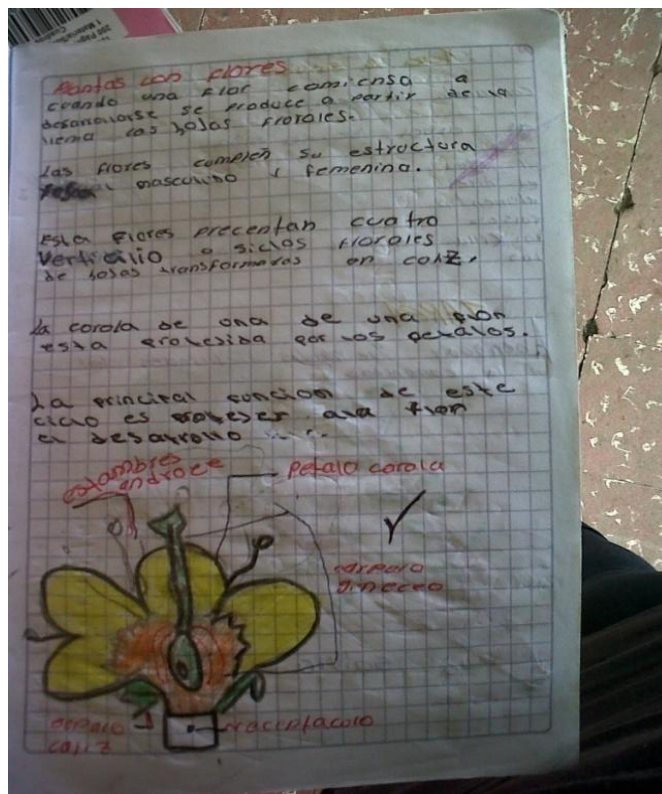 Plantas con flores
cuando una flor comiensa a
desarrollarse se produce a partir de la
llema las hojas florales.
Las flores cumplen su estructura
masculino y femenina.
Esta flores precentan cuatro
verticilio o siclos florales
de hojas transformadas en caliz.
La corola de una de una flor
esta protegida por los petalos.
La principal funcion de este
ciclo es proteger ala flor
el desarrollo
estambres
androce
petalo corola
carpelo
gineceo
sepalo
caliz
raceptaculo